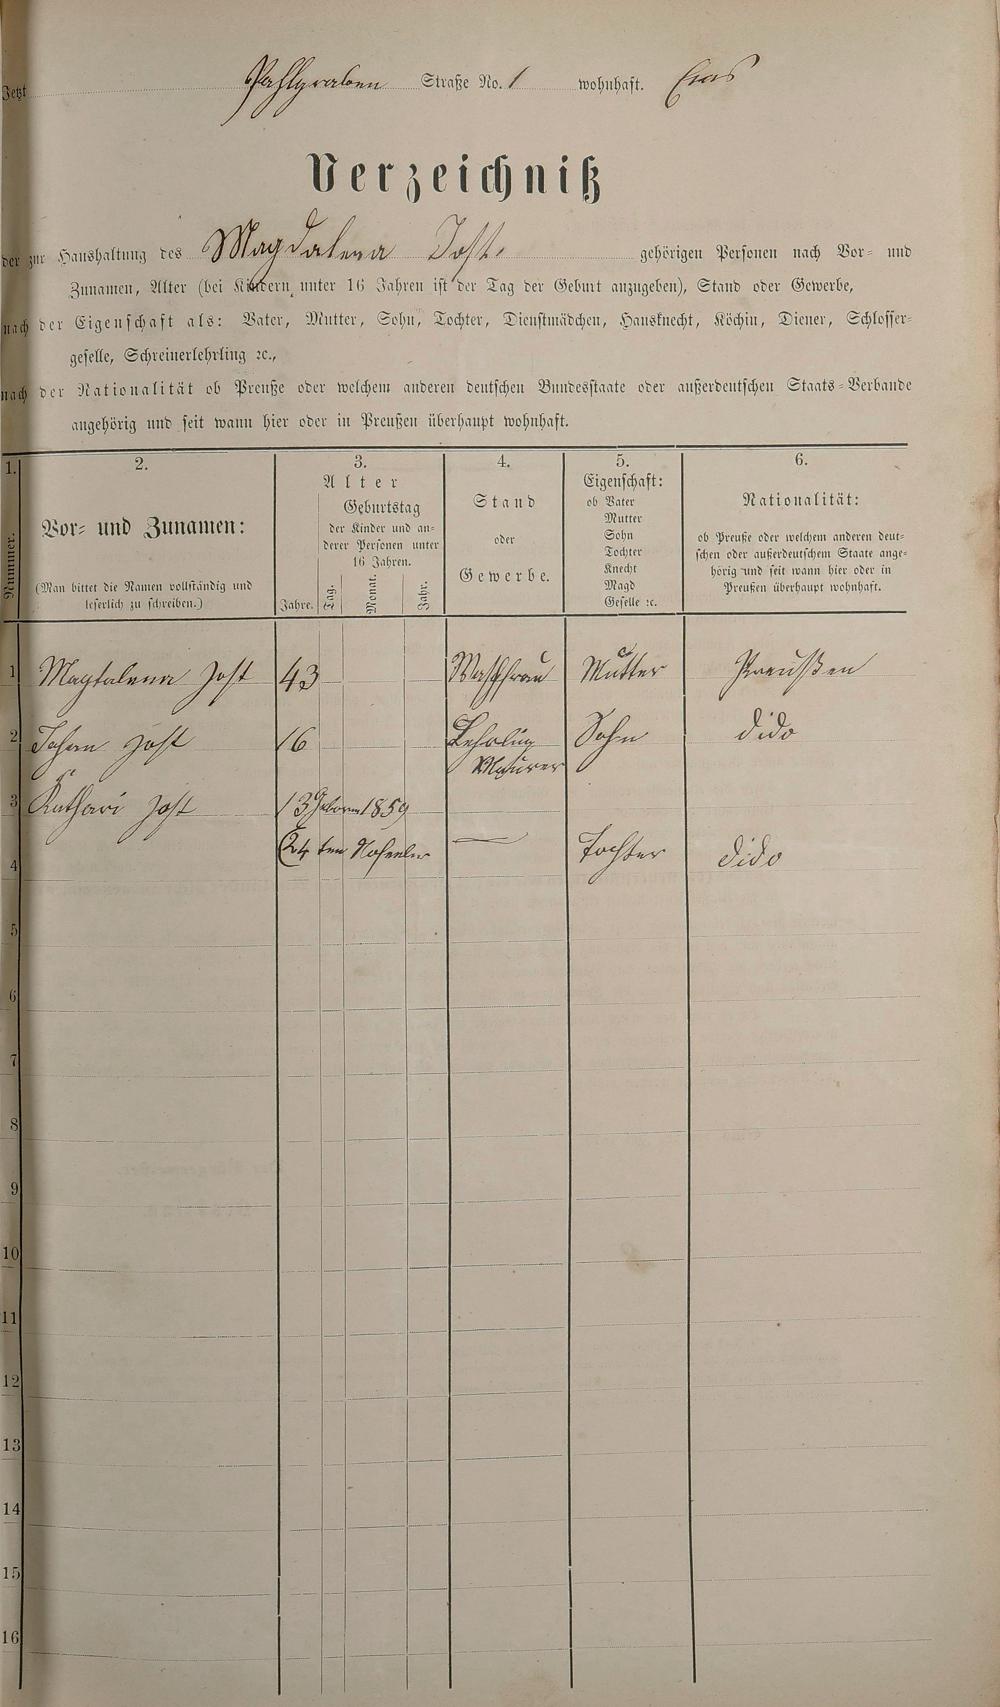 Jetzt Pahlgraben Straße No. 1 wohnhaft. Ems
Verzeichniß
der zur Haushaltung des Magdalena Jost. gehörigen Personen nach Vor- und
Zunamen, Alter (bei Kindern unter 16 Jahren ist der Tag der Geburt anzugeben), Stand oder Gewerbe,
nach der Eigenschaft als: Vater, Mutter, Sohn, Tochter, Dienstmädchen, Hausknecht, Köchin, Diener, Schlosser-
geselle, Schreinerlehrling ꝛc.,
nach der Nationalität ob Preuße oder welchem anderen deutschen Bundesstaate oder außerdeutschen Staats-Verbande
angehörig und seit wann hier oder in Preußen überhaupt wohnhaft.
1.
Nummer.
2.
Vor- und Zunamen:
(Man bittet die Namen vollständig und
leserlich zu schreiben.)
3.
Alter
Geburtstag
der Kinder und an-
derer Personen unter
16 Jahren.
Jahre. Tag. Monat. Jahr.
4.
Stand
oder
Gewerbe.
5.
Eigenschaft:
ob Vater
Mutter
Sohn
Tochter
Knecht
Magd
Geselle ꝛc.
6.
Nationalität:
ob Preuße oder welchem anderen deut-
schen oder außerdeutschem Staate ange-
hörig und seit wann hier oder in
Preußen überhaupt wohnhaft.
1 Magtalena Jost 43 Waschfrau Mutter Preußen
2 Johan Jost 16 Lehrling Sohn dido
Maurer
3 Kathari Jost 13 Geboren 1859
4 24 ten Tochter dido
5
6
7
8
9
10
11
12
13
14
15
16